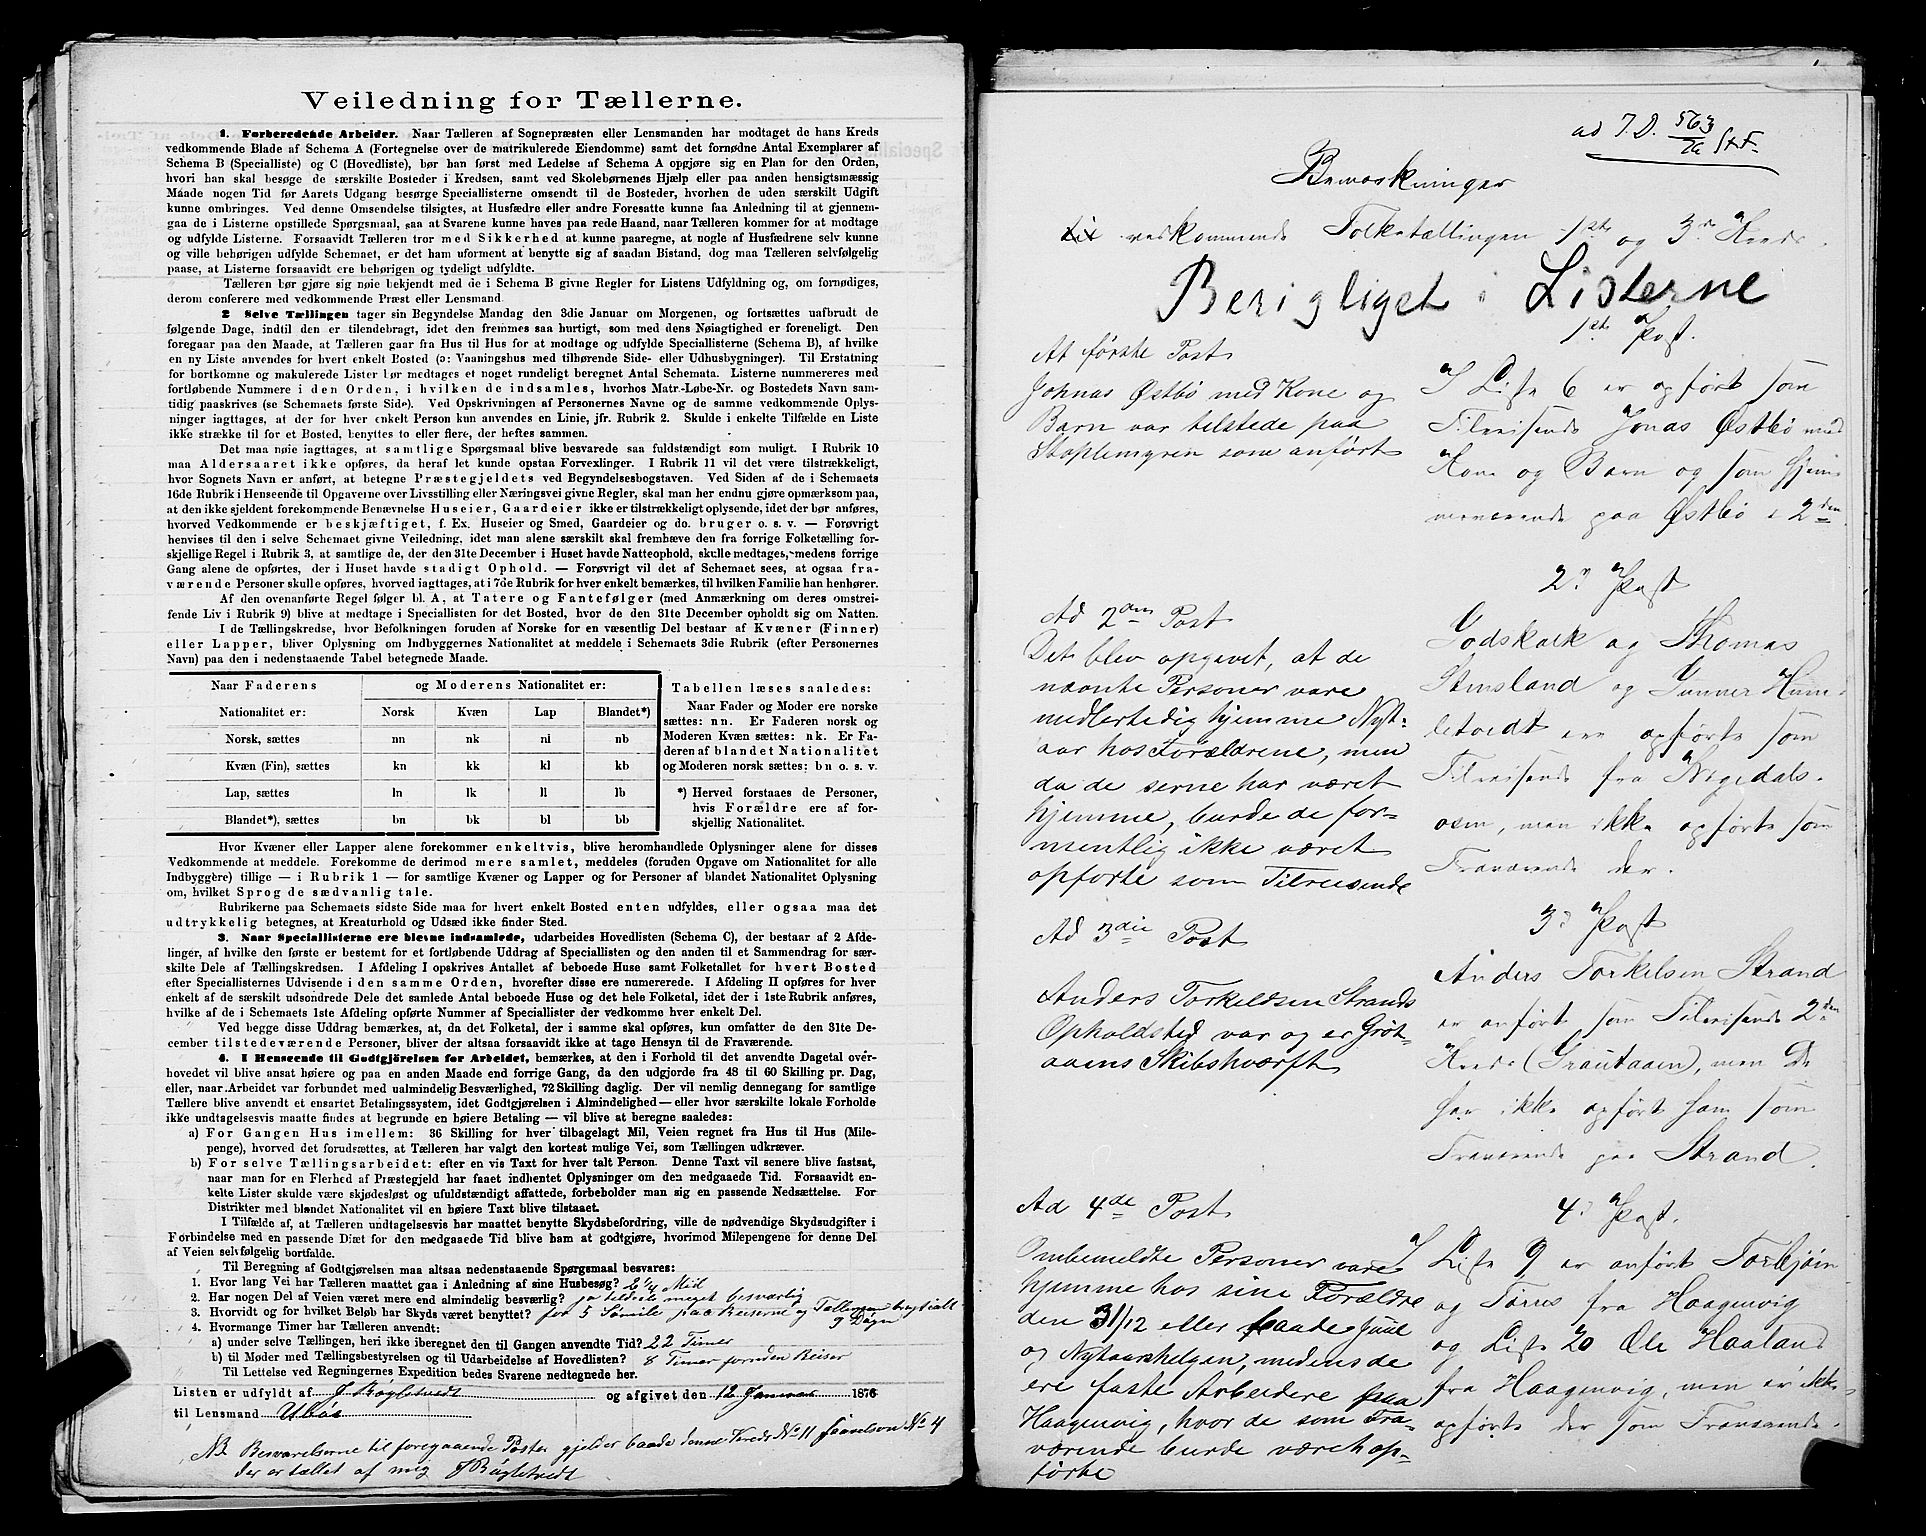 Veiledning for Tællerne.
1. Forberedende Arbeider. Naar Tælleren af Sognepræsten eller Lensmanden har modtaget de hans Kreds
vedkommende Blade af Schema A (Fortegnelse over de matrikulerede Eiendomme) samt det fornødne Antal Exemplarer af
Schema B (Specialliste) og C (Hovedliste), bør han først med Ledelse af Schema A opgjøre sig en Plan for den Orden,
hvori han skal besøge de særskilte Bosteder i Kredsen, samt ved Skolebørnenes Hjælp eller paa anden hensigtsmæssig
Maade nogen Tid før Aarets Udgang besørge Speciallisterne omsendt til de Bosteder, hvorhen de uden særskilt Udgift
kunne ombringes. Ved denne Omsendelse tilsigtes, at Husfædre eller andre Foresatte kunne faa Anledning til at gjennem-
gaa de i Listerne opstillede Spørgsmaal, saa at Svarene kunne haves paa rede Haand, naar Tælleren kommer for at modtage
og udfylde Listerne. Forsaavidt Tælleren tror med Sikkerhed at kunne paaregne, at nogle af Husfædrene selv kunne
og ville behørigen udfylde Schemaet, er det ham uforment at benytte sig af saadan Bistand, dog maa Tælleren selvfølgelig
paase, at Listerne forsaavidt ere behørigen og tydeligt udfyldte.
Tælleren bør gjøre sig nøie bekjendt med de i Schema B givne Regler for Listens Udfyldning og, om fornødiges,
derom conferere med vedkommende Præst eller Lensmand
2 Selve Tællingen tager sin Begyndelse Mandag den 3die Januar om Morgenen, og fortsættes uafbrudt de
følgende Dage, indtil den er tilendebragt, idet den fremmes saa hurtigt, som med dens Nøiagtighed er foreneligt. Den
foregaar paa den Maade, at Tælleren gaar fra Hus til Hus for at modtage og udfylde Speciallisterne (Schema B), af hvilke
en ny Liste anvendes for hvert enkelt Bosted (ɔ: Vaaningshus med tilhørende Side- eller Udhusbygninger). Til Erstatning
for bortkomne og makulerede Lister bør medtages et noget rundeligt beregnet Antal Schemata. Listerne nummereres med
fortløbende Nummere i den Orden, i hvilken de indsamles, hvorhos Matr.-Løbe-Nr. og Bostedets Navn sam-
tidig paaskrives (se Schemaets første Side). Ved Opskrivningen af Personernes Navne og de samme vedkommende Oplys-
ninger iagttages, at der for hver enkelt Person kun anvendes en Linie, jfr. Rubrik 2. Skulde i enkelte Tilfælde en Liste
ikke strække til for et Bosted, benyttes to eller flere, der heftes sammen.
Det maa nøie iagttages, at samtlige Spørgsmaal blive besvarede saa fuldstændigt som muligt. I Rubrik 10
maa Aldersaaret ikke opføres, da heraf let kunde opstaa Forvexlinger. I Rubrik 11 vil det være tilstrækkeligt,
hvor Sognets Navn er anført, at betegne Præstegjeldets ved Begyndelsesbogstaven. Ved Siden af de i Schemaets
16de Rubrik i Henseende til Opgaverne over Livsstilling eller Næringsvei givne Regler, skal man her endnu gjøre opmærksom paa,
at den ikke sjeldent forekommende Benævnelse Huseier, Gaardeier ikke er tilstrækkeligt oplysende, idet der bør anføres,
hvorved Vedkommende er beskjæftiget, f. Ex. Huseier og Smed, Gaardeier og do. bruger o. s. v. — Forøvrigt
henvises til den i selve Schemaet givne Veiledning, idet man alene særskilt skal fremhæve den fra forrige Folketælling for-
skjellige Regel i Rubrik 3, at samtlige de, der den 31te December i Huset havde Natteophold, skulle medtages, medens forrige
Gang alene de opførtes, der i Huset havde stadigt Ophold. — Forøvrigt vil det af Schemaet sees, at ogsaa fra-
værende Personer skulle opføres, hvorved iagttages, at i 7de Rubrik for hver enkelt bemærkes, til hvilken Familie han henhører.
Af den ovenanførte Regel følger bl. A, at Tatere og Fantefølger (med Anmærkning om deres omstrei-
fende Liv i Rubrik 9) blive at medtage i Speciallisten for det Bosted, hvor de den 31te December opholdt sig om Natten.
I de Tællingskredse, hvor Befolkningen foruden af Norske for en væsentlig Del bestaar af Kvæner (Finner)
eller Lapper, bliver Oplysning om Indbyggernes Nationalitet at meddele i Schemaets 3die Rubrik (efter Personernes
Navn) paa den i nedenstaaende Tabel betegnede Maade.
Naar Faderens og Moderens Nationalitet er:
Nationalitet er: Norsk Kvæn Lap Blandet*)
Norsk, sættes nn nk nl nb
Kvæn (Fin), sættes kn kk kl kb
Lap, sættes ln lk ll lb
Blandet*), sættes bn bk bl bb
Tabellen læses saaledes:
Naar Fader og Moder ere norske
sættes: nn. Er Faderen norsk og
Moderen Kvæn sættes: nk. Er Fa-
deren af blandet Nationalitet
og Moderen norsk sættes: bn o. s. v.
*) Herved forstaaes de Personer,
hvis Forældre ere af for-
skjellig Nationalitet.
Hvor Kvæner eller Lapper alene forekommer enkeltvis, blive heromhandlede Oplysninger alene for disses
Vedkommende at meddele. Forekomme de derimod mere samlet, meddeles (foruden Opgave om Nationalitet for alle
Indbyggere) tillige — i Rubrik 1 — for samtlige Kvæner og Lapper og for Personer af blandet Nationalitet Oplysning
om, hvilket Sprog de sædvanlig tale.
Rubrikerne paa Schemaets sidste Side maa for hvert enkelt Bosted enten udfyldes, eller ogsaa maa det
udtrykkelig betegnes, at Kreaturhold og Udsæd ikke finder Sted.
3. Naar Speciallisterne ere blevne indsamlede, udarbeides Hovedlisten (Schema C), der bestaar af 2 Afde-
linger, af hvilke den første er bestemt for et fortløbende Uddrag af Speciallisten og den anden til et Sammendrag for sær-
skilte Dele af Tællingskredsen. I Afdeling I opskrives Antallet af beboede Huse samt Folketallet for hvert Bosted
efter Speciallisternes Udvisende i den samme Orden, hvorefter disse ere numererede. I Afdeling II opføres for hver
enkelt af de særskilt udsondrede Dele det samlede Antal beboede Huse og det hele Folketal, idet der i 1ste Rubrik anføres,
hvilke af de i Schemaets 1ste Afdeling opførte Nummer af Speciallister der vedkomme hver enkelt Del.
Ved begge disse Uddrag bemærkes, at, da det Folketal, der i samme skal opføres, kun omfatter de den 31te De-
cember tilstedeværende Personer, bliver der altsaa forsaavidt ikke at tage Hensyn til de Fraværende.
4. I Henseende til Godtgjörelsen for Arbeidet, bemærkes, at den i Forhold til det anvendte Dagetal over-
hovedet vil blive ansat høiere og paa en anden Maade end forrige Gang, da den udgjorde fra 48 til 60 Skilling pr. Dag,
eller, naar Arbeidet var forbundet med ualmindelig Besværlighed, 72 Skilling daglig. Der vil nemlig dennegang for samtlige
Tællere blive anvendt et ensartet Betalingssystem, idet Godtgjörelsen i Almindelighed — eller hvor særskilte lokale Forholde
ikke undtagelsesvis maatte findes at begrunde en høiere Betaling — vil blive at beregne saaledes:
a) For Gangen Hus imellem: 36 Skilling for hver tilbagelagt Mil, Veien regnet fra Hus til Hus (Mile-
penge), hvorved det forudsættes, at Tælleren har valgt den kortest mulige Vei, som Tællingen udkræver.
b) For selve Tællingsarbeidet: efter en vis Taxt for hver talt Person. Denne Taxt vil senere blive fastsat,
naar man for en Flerhed af Præstegjeld har faaet indhentet Oplysninger om den medgaaede Tid. Forsaavidt en-
kelte Lister skulde være skjødesløst og ufuldstændigt affattede, forbeholder man sig en passende Nedsættelse. For
Distrikter med blandet Nationalitet vil en høiere Taxt blive tilstaaet.
I Tilfælde af, at Tælleren undtagelsesvis har maattet benytte Skydsbefordring, ville de nødvendige Skydsudgifter i
Forbindelse med en passende Diæt for den medgaaede Tid blive ham at godtgjøre, hvorimod Milepengene for denne Del
af Veien selvfølgelig bortfalde.
Til Beregning af Godtgjörelsen maa altsaa nedenstaaende Spørgsmaal besvares:
1. Hvor lang Vei har Tælleren maattet gaa i Anledning af sine Husbesøg? 2 1/4 Miil
2. Har nogen Del af Veien været mere end almindelig besværlig? ja meget besværlig
3. Hvorvidt og for hvilket Beløb har Skyds været benyttet? for 5 Sömile paa Reiserne og
4. Hvormange Timer har Tælleren anvendt: 9 Døgn
a) under selve Tællingen, heri ikke iberegnet den til Gangen anvendte Tid? 22 Timer
b) til Møder med Tællingsbestyrelsen og til Udarbeidelse af Hovedlisten? 8 Timer foruden Reiser
Til Lettelse ved Regningernes Expedition bedes Svarene nedtegnede her.
Listen er udfyldt af J Bøgletvedt og afgivet den 12 Januar 1876
til Lensmand Ubøe
NB Besvarelserne til foregaaende Poster gjelder baade denne Kreds No 11 saavelsom No 4
der er tællet af mig J Bögletvedt
ad J. D. 563/76 St.F.
Bemærkninger
vedkommende Folketællingen 1ste og 3die Kreds.
Berigtiget i Listerne
1ste Post.
At første Post
Johnas Østbö med Kone og
Barn var tilstede paa
som anført
I Liste 6 er opført som
Tilreisende Jonas Østbö med
Kone og Barn og som hjem-
meværende paa Østbö i 2den
2den Post
Ad 2den Post
Det blev opgivet, at de
nævnte Personer vare
midlertidig hjemme Nyt-
aar hos Forældrene, men
da de senere har været
hjemme, burde de for-
mentlig ikke været
opförte som Tilreisende
Godskalk og Thomas
Stensland og Gunner Hum-
letvedt ere opførte som
Tilreisende fra
osen, men ikke opførte som
Fraværende der.
3die Post
Ad 3die Post
Anders Torkeldsen Strands
Opholdsted var og er Gröt-
aaens Skibsværft
Anders Torkelsen Strand
er anført som Tilreisende 2den
Kreds (Grautaaen), men De
har ikke opført ham som
Fraværende paa Strand.
4de Post.
Ad 4de Post
Ombemeldte Personer vare
hjemme hos sine Forældre
den 31/12 eller baade Juul
og Nytaarshelgen, medens de
ere faste Arbeidere paa
Haagenvig, hvor de som Fra-
værende burde været op-
förte
I Liste 9 er anført Torbjön
og Törres fra Haagenvig
og Liste 20 Ole Haaland
fra Haagenvig, men er ikke
opførte der som Fraværende.